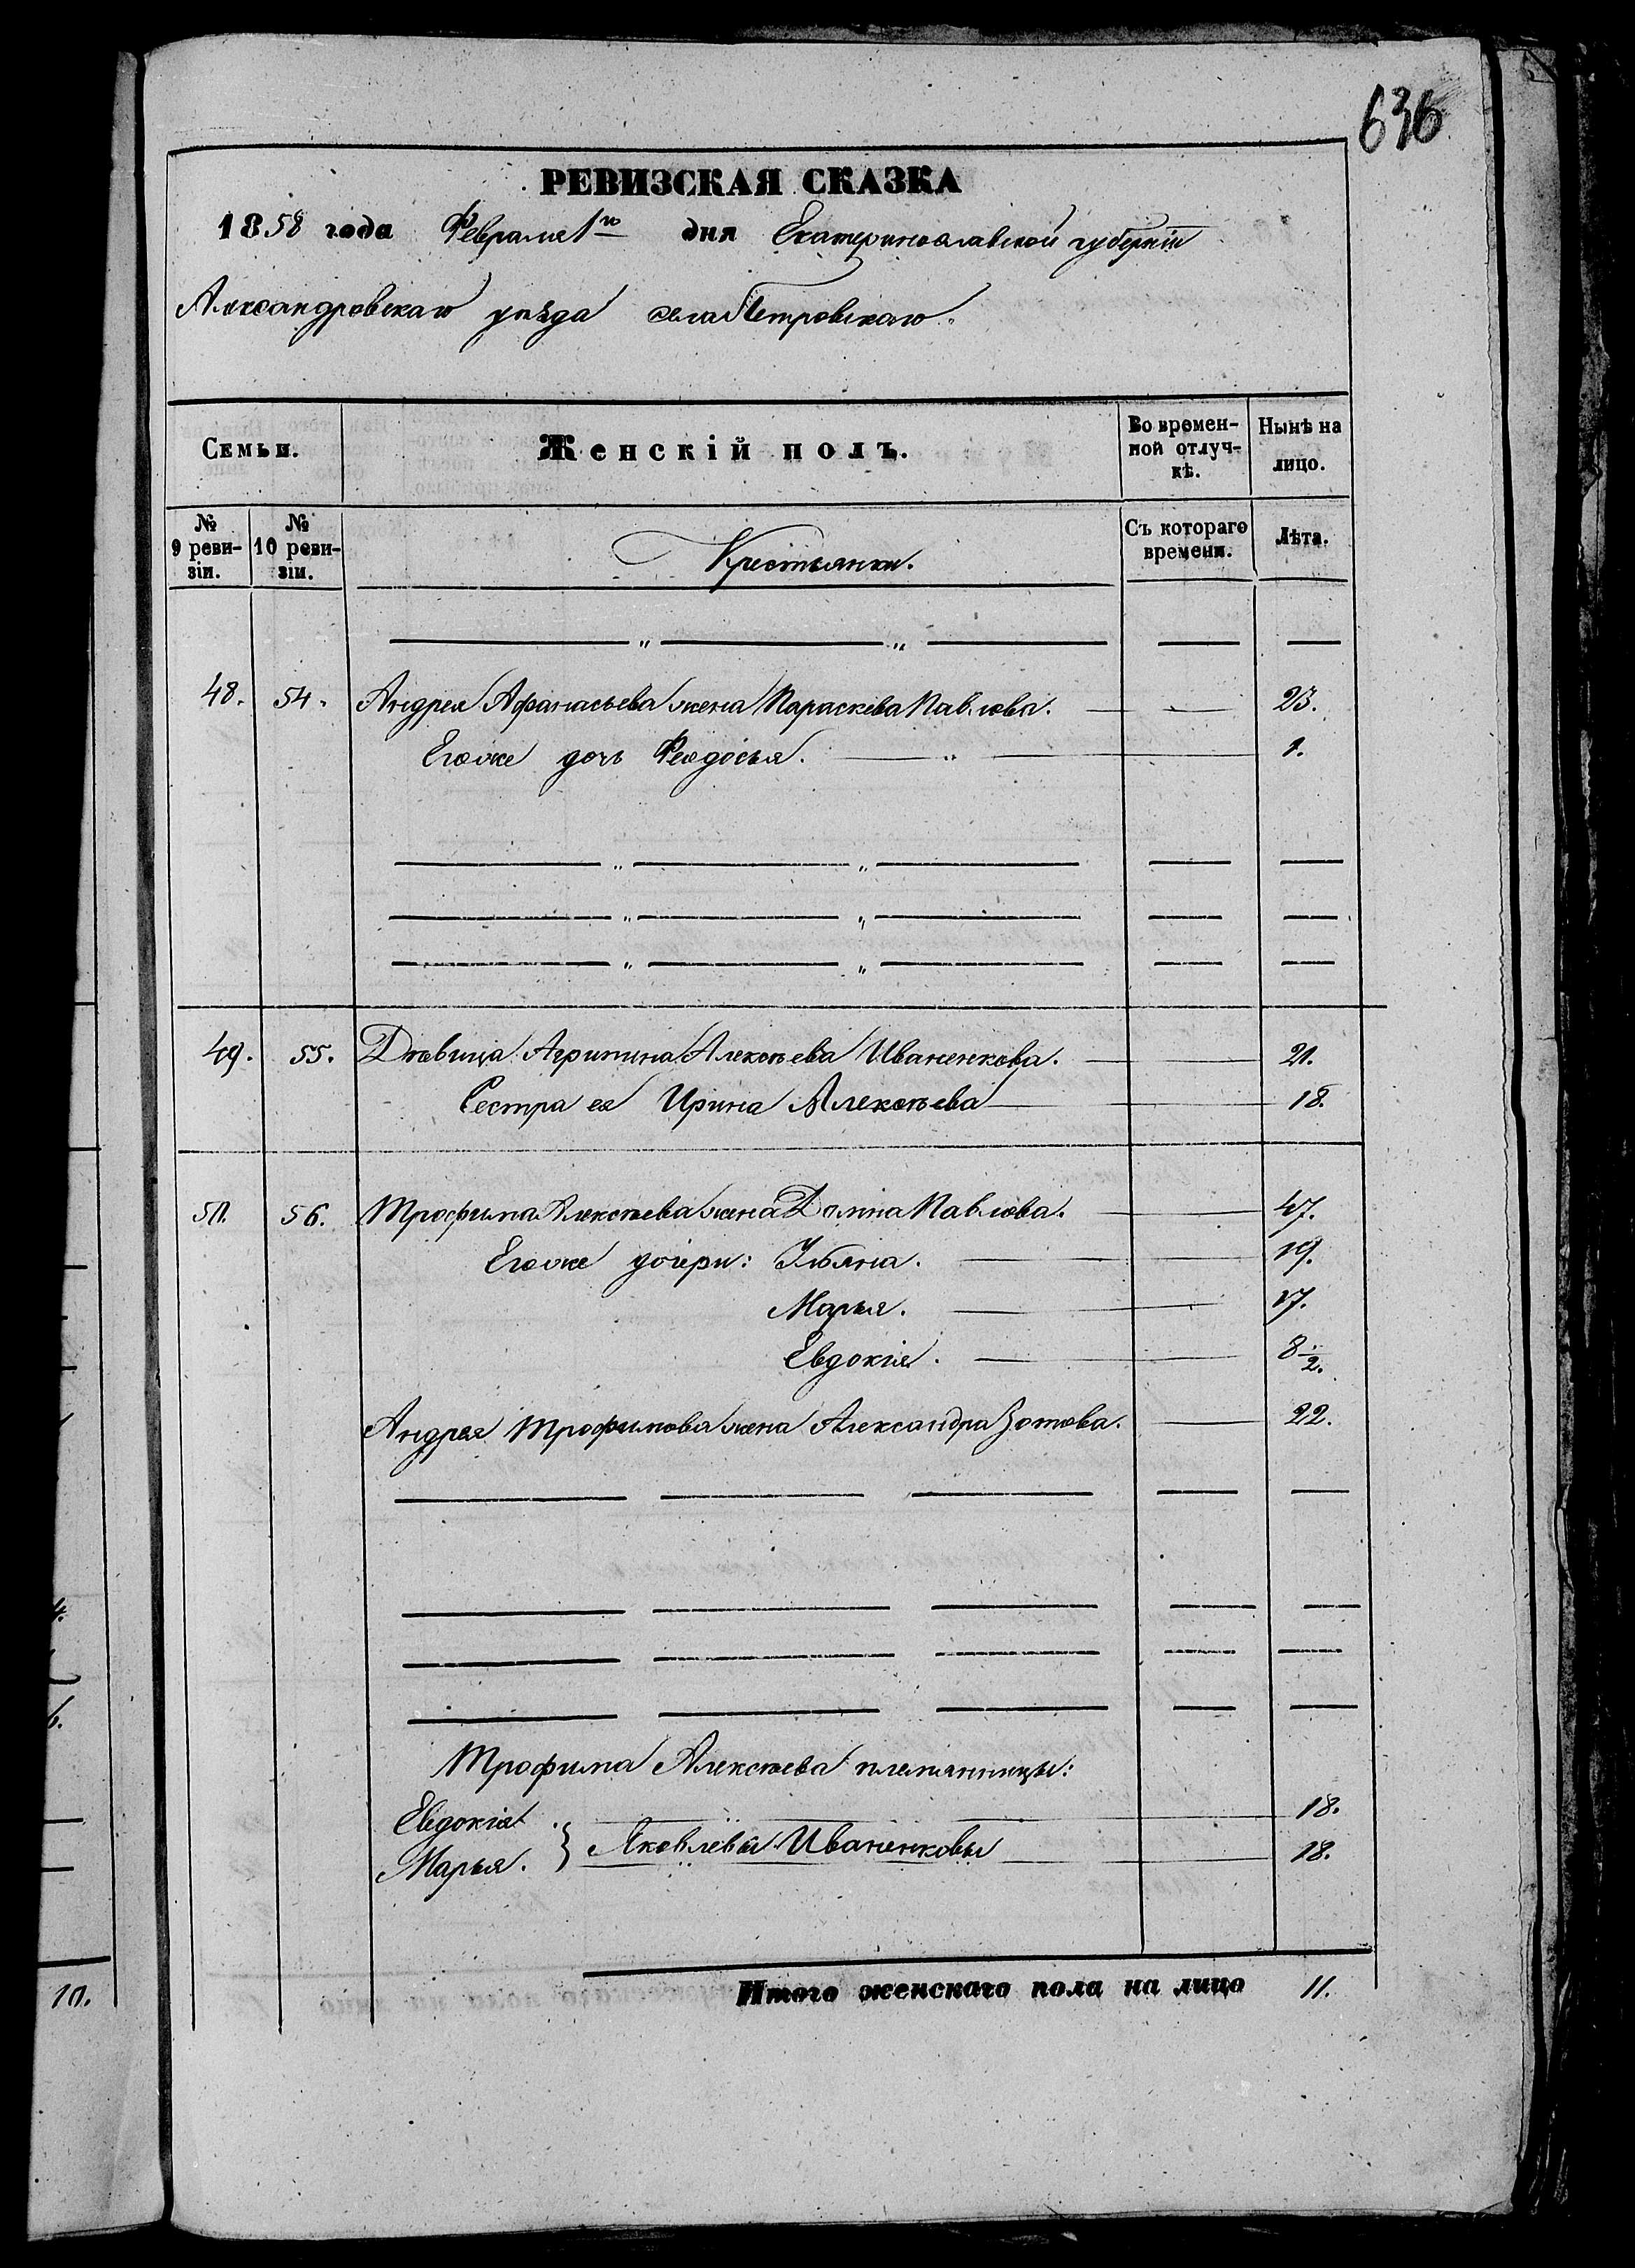 636
РЕВИЗСКАЯ СКАЗКА
1858 года Февраля 1го дня Екатеринославской губерніи
Александровскаго уѣзда села Петровскаго.
Семьи. Женскій полъ. Во времен-ной отлуч-кѣ. Нынѣ на лицо.
№ 9 реви-зіи. № 10 реви-зіи. Крестьянки. Съ котораго времени. Лѣта.
48. 54. Андрея Афанасьева жена Параскева Павлова. 23.
Его же дочь Феодосья. 1.
49. 55. Дѣвица Агрипина Алексѣева Иваненкова. 21.
Сестра ея Ирина Алексѣева 18.
50. 56. Трофима Алексѣева жена Домна Павлова. 47.
Его же дочери: Ульяна. 19.
Марья. 17.
Евдокія. 8 1/2.
Андрея Трофимова жена Александра Зотова. 22.
Трофима Алексѣева племянницы:
Евдокія. 18.
Марья. } Яковлевы Иваненковы 18.
Итого женскаго пола на лицо 11.
10.